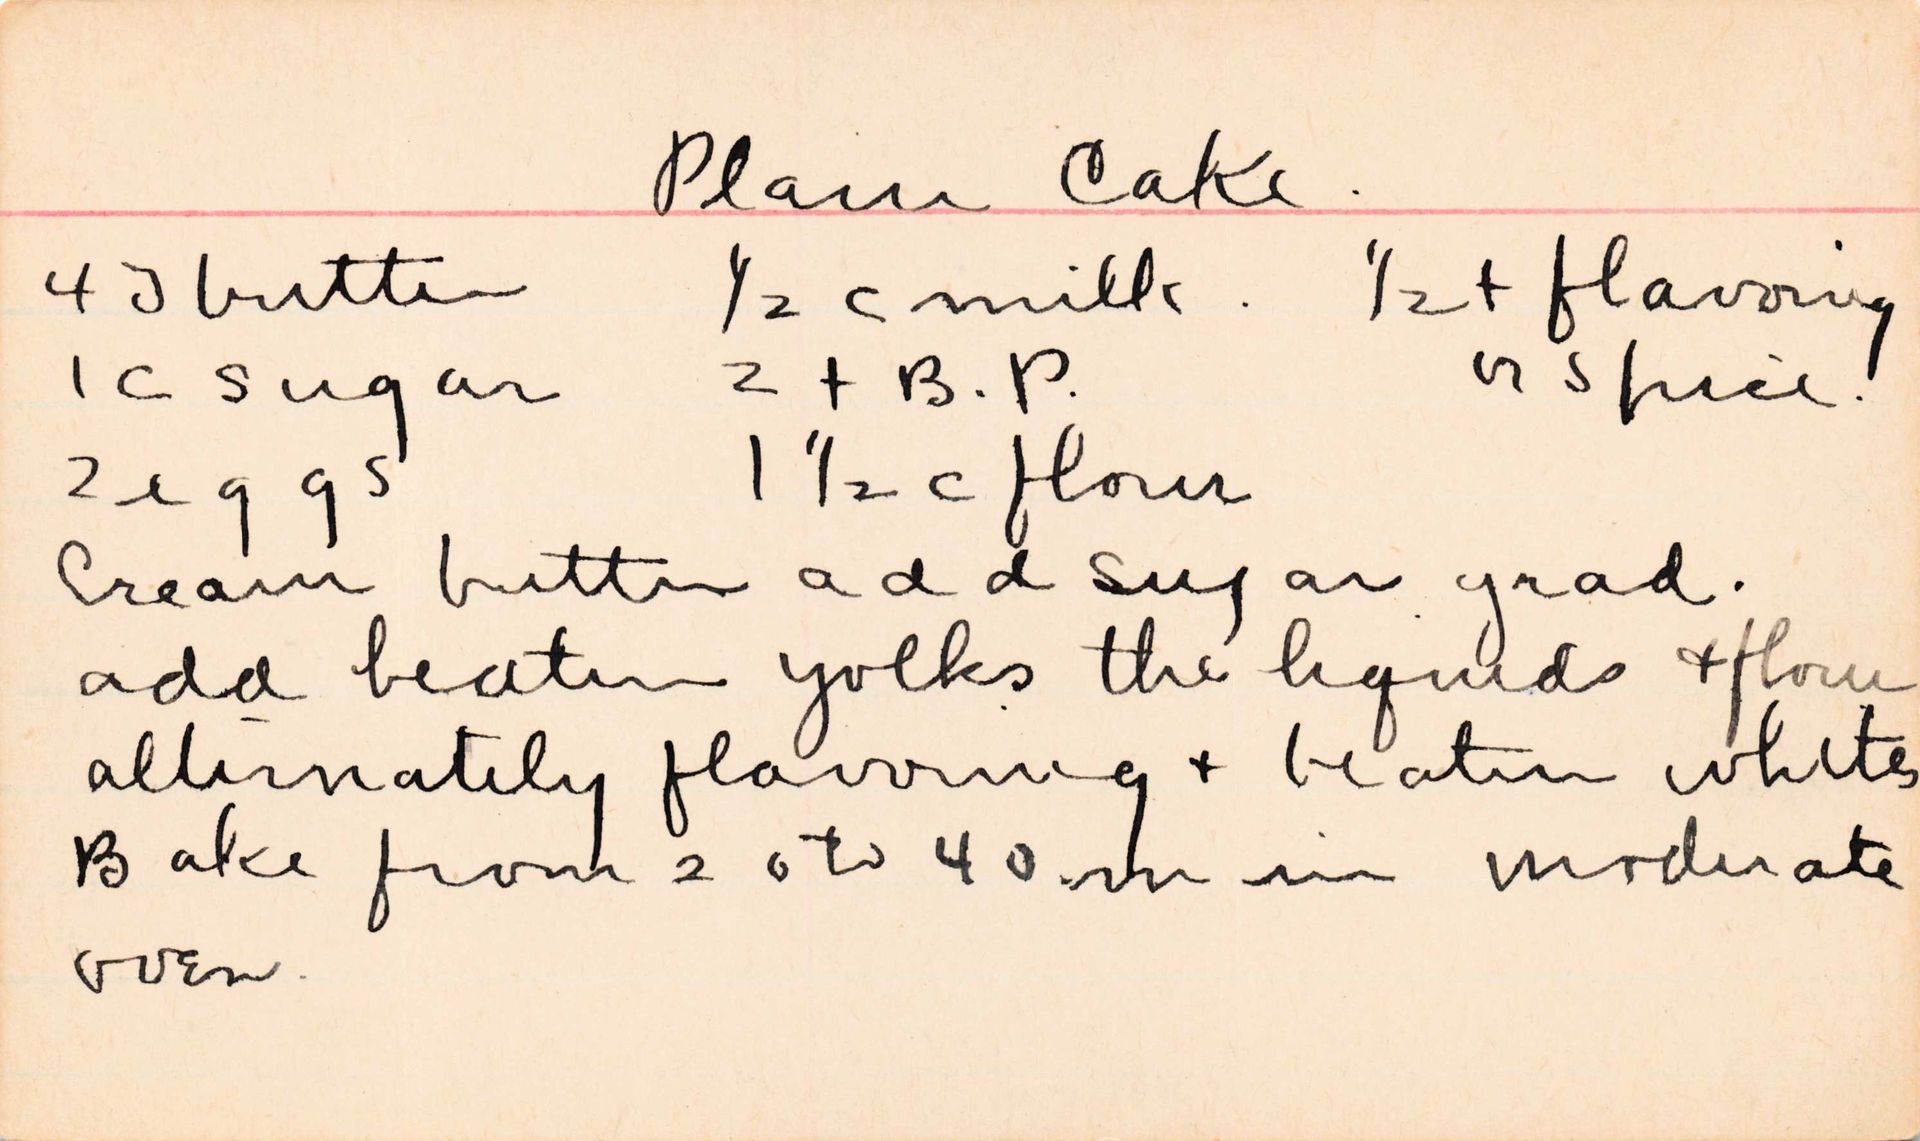 Plain Cake.
4 T butter 1/2 c milk. 1/2 t flavoring
1 c sugar 2 t B.P. or spice.
2 eggs 1 1/2 c flour
Cream butter add sugar grad.
add beaten yolks the liquids + flour
alternately flavoring + beaten whites
Bake from 20 to 40 m in moderate
oven.